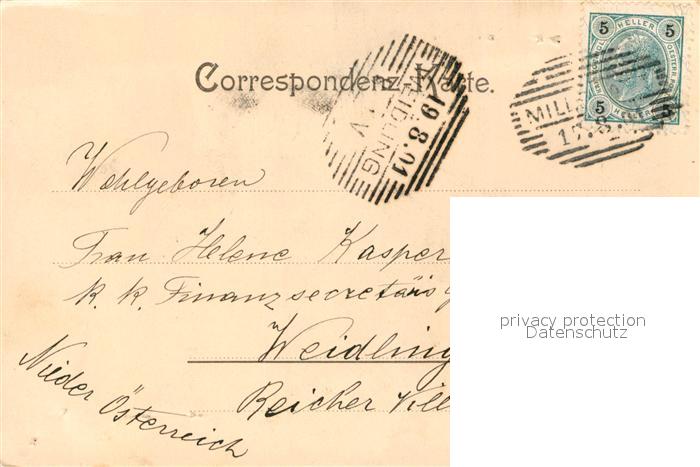 Correspondenz-Karte.
5 HELLER 5
5 HELLER 5
MILL
17.8.
WEIDLING
19.8.01
Wohlgeboren
Frau Helene Kasper
k. k. Finanzsecretärs
Weidling
Reicher Vill
Nieder Österreich
privacy protection
Datenschutz